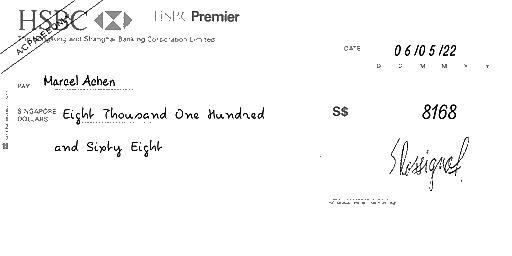 HSBC HSBC Premier
The Hongkong and Shanghai Banking Corporation Limited
A/C PAYEE ONLY
DATE 06/05/22
D D M M Y Y
PAY Marcel Achen
SINGAPORE DOLLARS Eight Thousand One Hundred
and Sixty Eight
S$ 8168